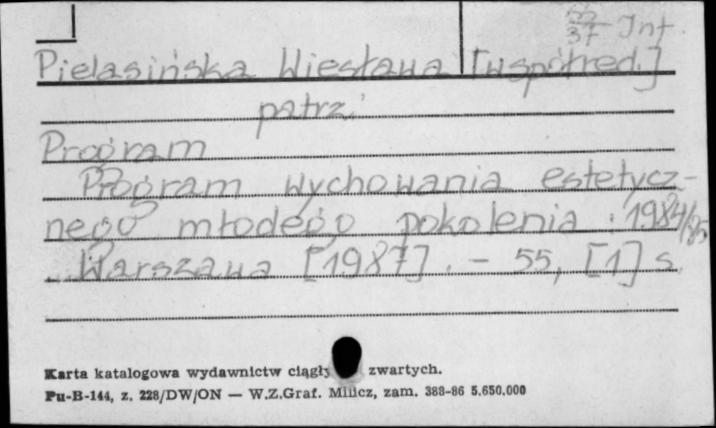 37 Int.
Pielasińska Wiesława [współred.]
patrz:
Program
Program wychowania estetycz-
nego młodego pokolenia : 1984/85
Warszawa [1987]. - 55, [1] s.
Karta katalogowa wydawnictw ciągły zwartych.
Pu-B-144, z. 228/DW/ON — W.Z.Graf. Milicz, zam. 388-86 5.650.000